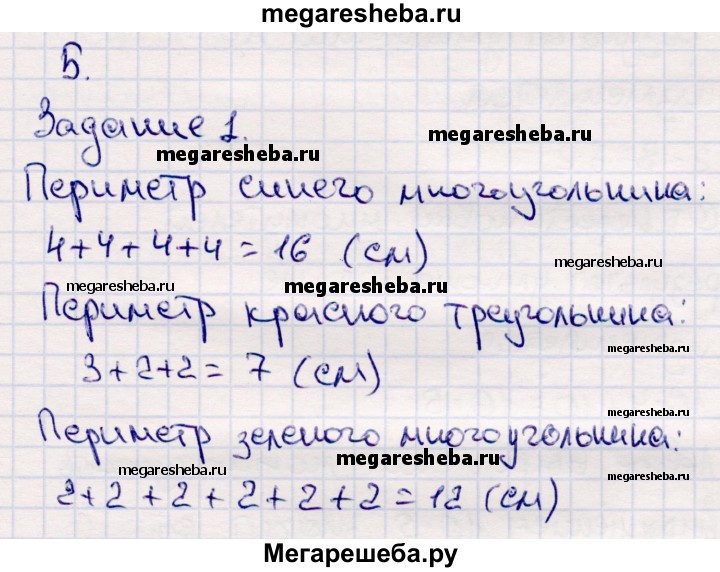 megaresheba.ru
5.
megaresheba.ru
Задание 1.
megaresheba.ru
Периметр синего многоугольника:
4+4+4+4=16 (см)
megaresheba.ru
megaresheba.ru
megaresheba.ru
Периметр красного треугольника:
megaresheba.ru
3+2+2= 7 (см)
megaresheba.ru
Периметр зеленого многоугольника:
megaresheba.ru
megaresheba.ru
2+2+2+2+2+2=12 (см)
Мегарешеба.ру